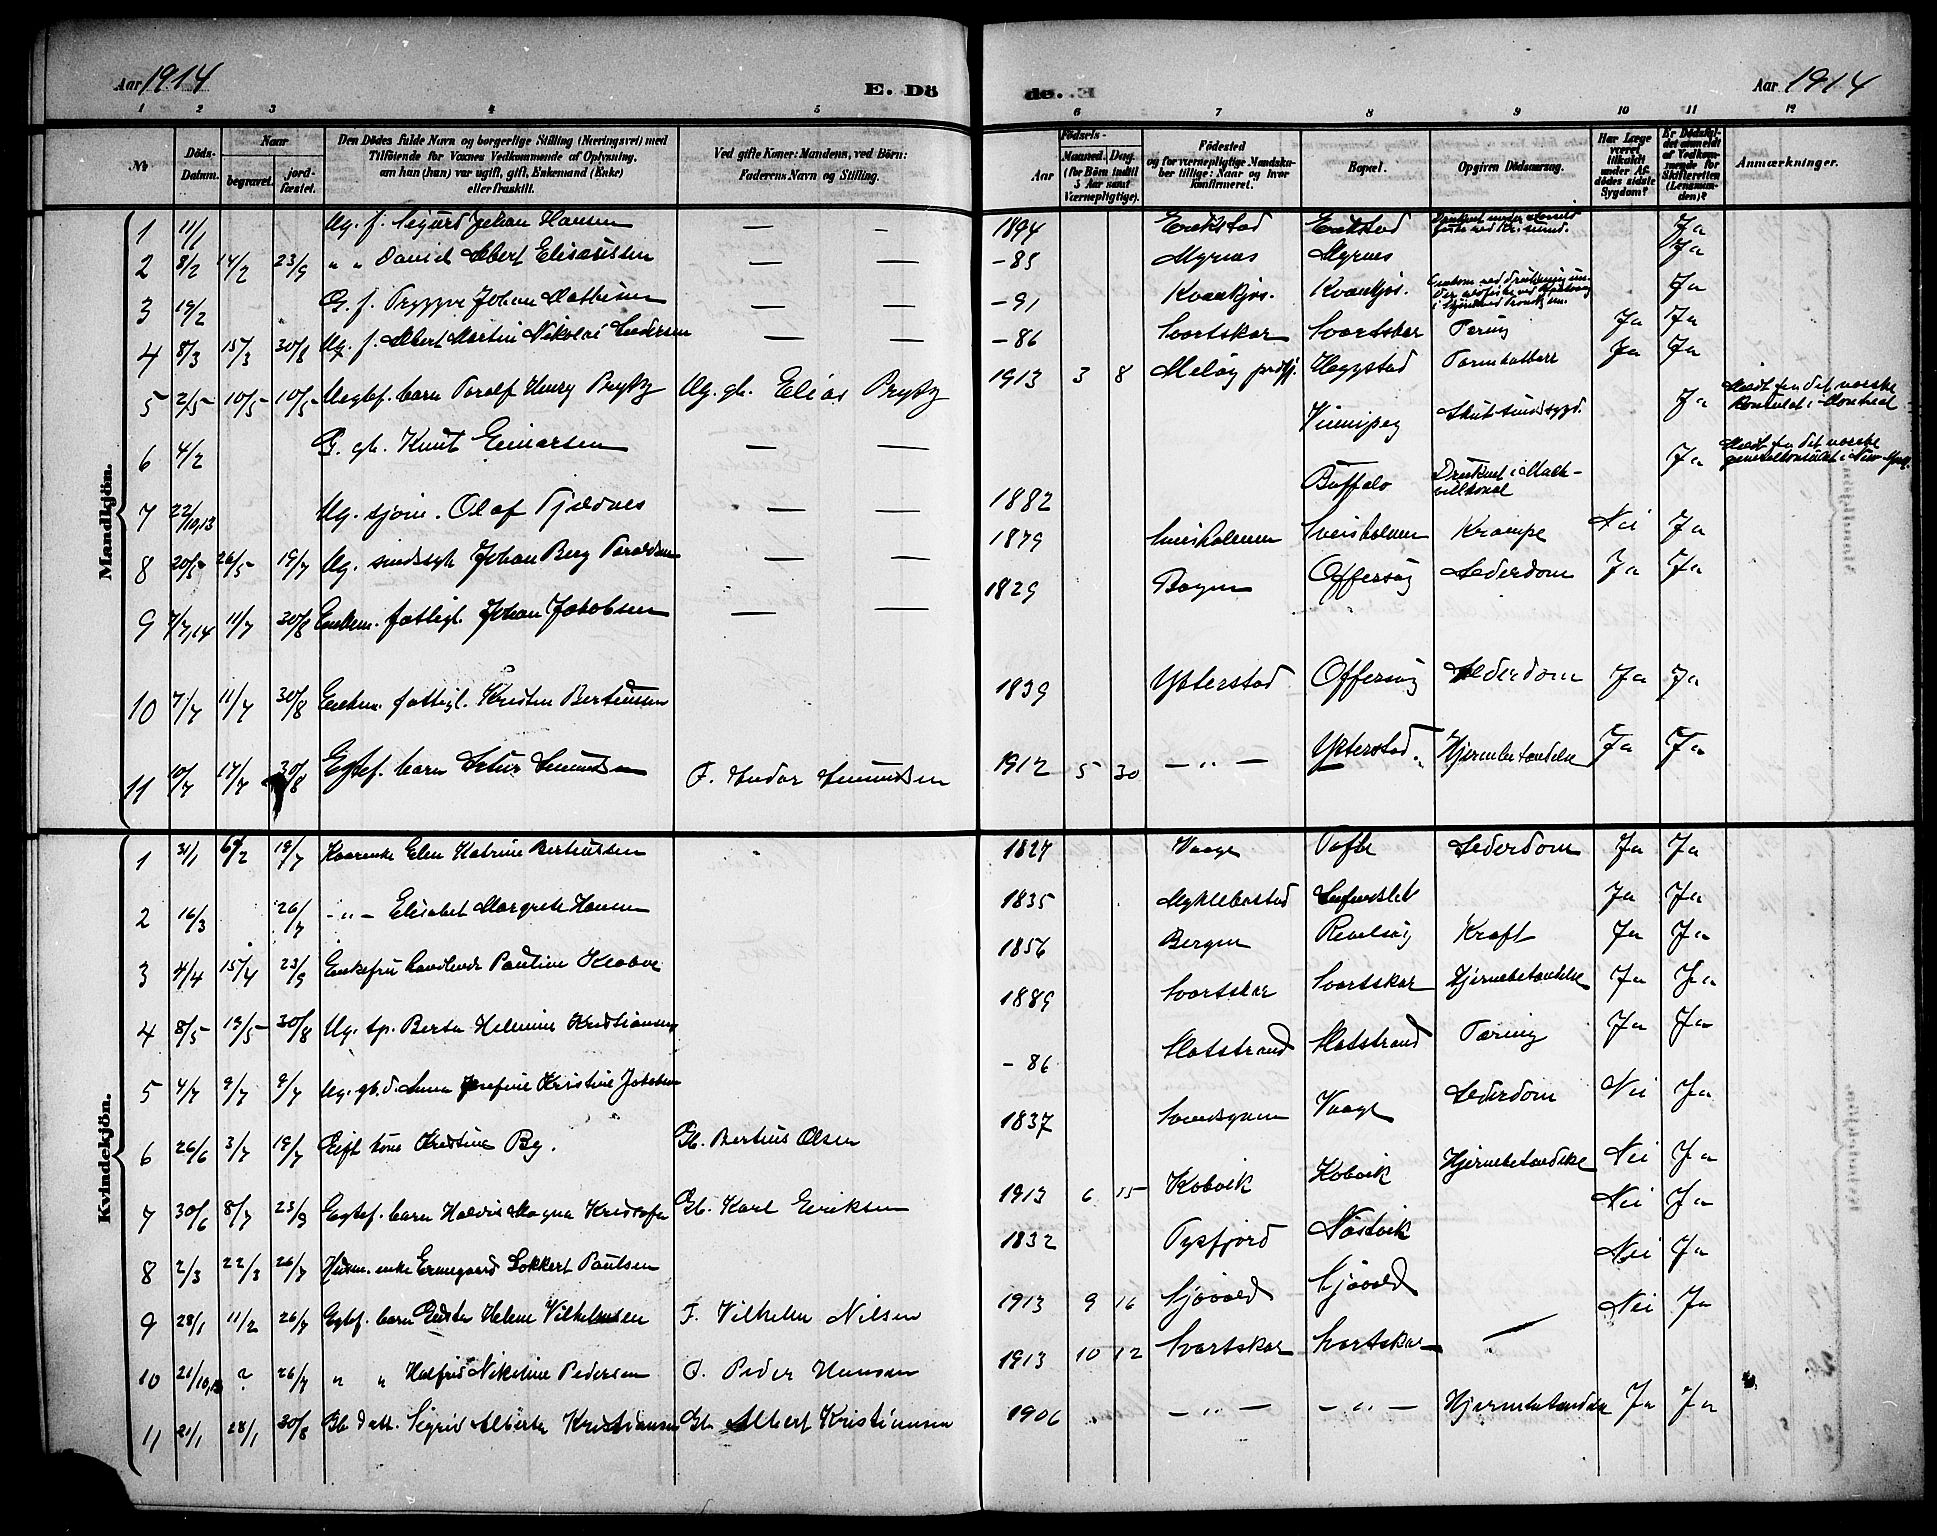 Aar 1914
E. Dö
de. E.
Aar 1914
1 2 3 4 5 6 7 8 9 10 11 12
№
Döds-Datum.
Naar
begravet.
jord-fæstet.
Den Dödes fulde Navn og borgerlige Stilling (Næringsvei) med
Tilföiende for Voxnes Vedkommende af Oplysning,
om han (hun) var ugift, gift, Enkemand (Enke)
eller fraskilt.
Ved gifte Koner: Mandens, ved Börn:
Faderens Navn og Stilling.
Födsels-
Aar
Maaned. Dag.
(for Börn indtil
5 Aar samt
Værnepligtige).
Födested
og for værnepligtige Mandska-
ber tillige: Naar og hvor
konfirmeret.
Bopæl.
Opgiven Dödsaarsag.
Har Læge
været
tilkaldt
under Af-
dödes sidste
Sygdom?
Er Dödsfal-
det anmeldt
af Vedkom-
mende for
Skifteretten
(Lensman-
den)?
Anmærkninger.
Mandkjön.
1 11/1 Ug. f. Sigurd Johan Hansen — — 1894 Erikstad Erikstad Ja
2 8/2 14/2 23/9 " " David Albert Elisæussen — — -85 Myrnes Myrnes Ja
3 19/2 G. f. Tryggve Johan Mathisen — — -91 Kvankjos. Kvankjos. Ja
4 8/3 15/3 30/8 Ug. f. Albert Martin Nikolai Andersen — — -86 Svartskar Svartskar Tæring Ja Ja
5 2/5 10/5 10/5 Uegtef. barn Toralf Henry Brygg Ug. gb. Elias Brygg 1913 3 8 Meløy prstgj. Heggstad Tarmkatarr Ja Ja
6 4/2 G. gb. Knut Einarsen — — Vinnipeg Ja Medt. fra det norske Konsulat i Montreal
7 22/10,13 Ug. sjøm. Olaf Tjeldnes — — 1882 Buffalo Ja Medt. fra det norske generalkonsulat i New York.
8 20/5 26/5 19/7 Ug. sindssyk Johan Berg Toraldsen — — 1879 Sveisholmen Sveisholmen Krampe Nei Ja
9 7/7,14 11/7 30/8 Enkem. fattigl. Johan Jakobsen — — 1829 Bogen Offersøy Alderdom Ja Ja
10 7/7 11/7 30/8 Enkem. fattigl. Kristen Berteussen 1839 Ytterstad Offersøy Alderdom Ja Ja
11 10/7 17/7 30/8 Egtef. barn Artur Amundsen F. Andor Amundsen 1912 5 30 — " — Ytterstad. Hjernebetændelse Ja Ja
Kvindekjön.
1 31/1 19/7 Kaarenke Elen Katrine Berteussen 1827 Vaage Tofte Alderdom Ja Ja
2 16/3 26/7 — " — Elisabet Margrete Hansen 1835 Myklebostad Ja Ja
3 4/4 15/4 23/9 Enkefru Pauline Klæboe 1856 Bergen Revelsøy Kræft Ja Ja
4 8/5 19/5 30/8 Ug. tp. Berta Helmine Kristiansen 1889 Svartskar Svartskar Hjernebetændelse Ja Ja
5 4/7 9/7 9/7 Ug. gb.d. Anna Josefine Kristine Jakobsen -86 Slotstrand Slotstrand Tæring Ja Ja
6 26/6 3/7 19/7 Gift kone Kristine By. Gb. Berteus Olsen 1837 Vaage Alderdom Nei Ja
7 30/6 8/7 23/9 Egtef. barn Halvis Magna Kristofa Gb. Karl Eriksen 1913 6 15 Kobvik Kobvik Hjernebetændelse Nei Ja
8 2/3 22/3 26/7 Husm. enke Ermegaard Lokkert Paulsen 1832 Tysfjord Nastvik Nei Ja
9 28/1 11/2 26/7 Egtef. barn Helene Vilhelmsen F. Vilhelm Nilsen 1913 9 16 Sjåvold Sjåvold Nei Ja
10 21/10,13 ? 26/7 " " Halfrid Nikoline Pedersen F. Peder Hansen 1913 10 12 Svartskar Svartskar Nei Ja
11 21/1 28/1 30/8 Gb datt. Sigrid Alberta Kristiansen Gb. Albert Kristiansen 1906 — " — — " — Hjernebetændelse Ja Ja